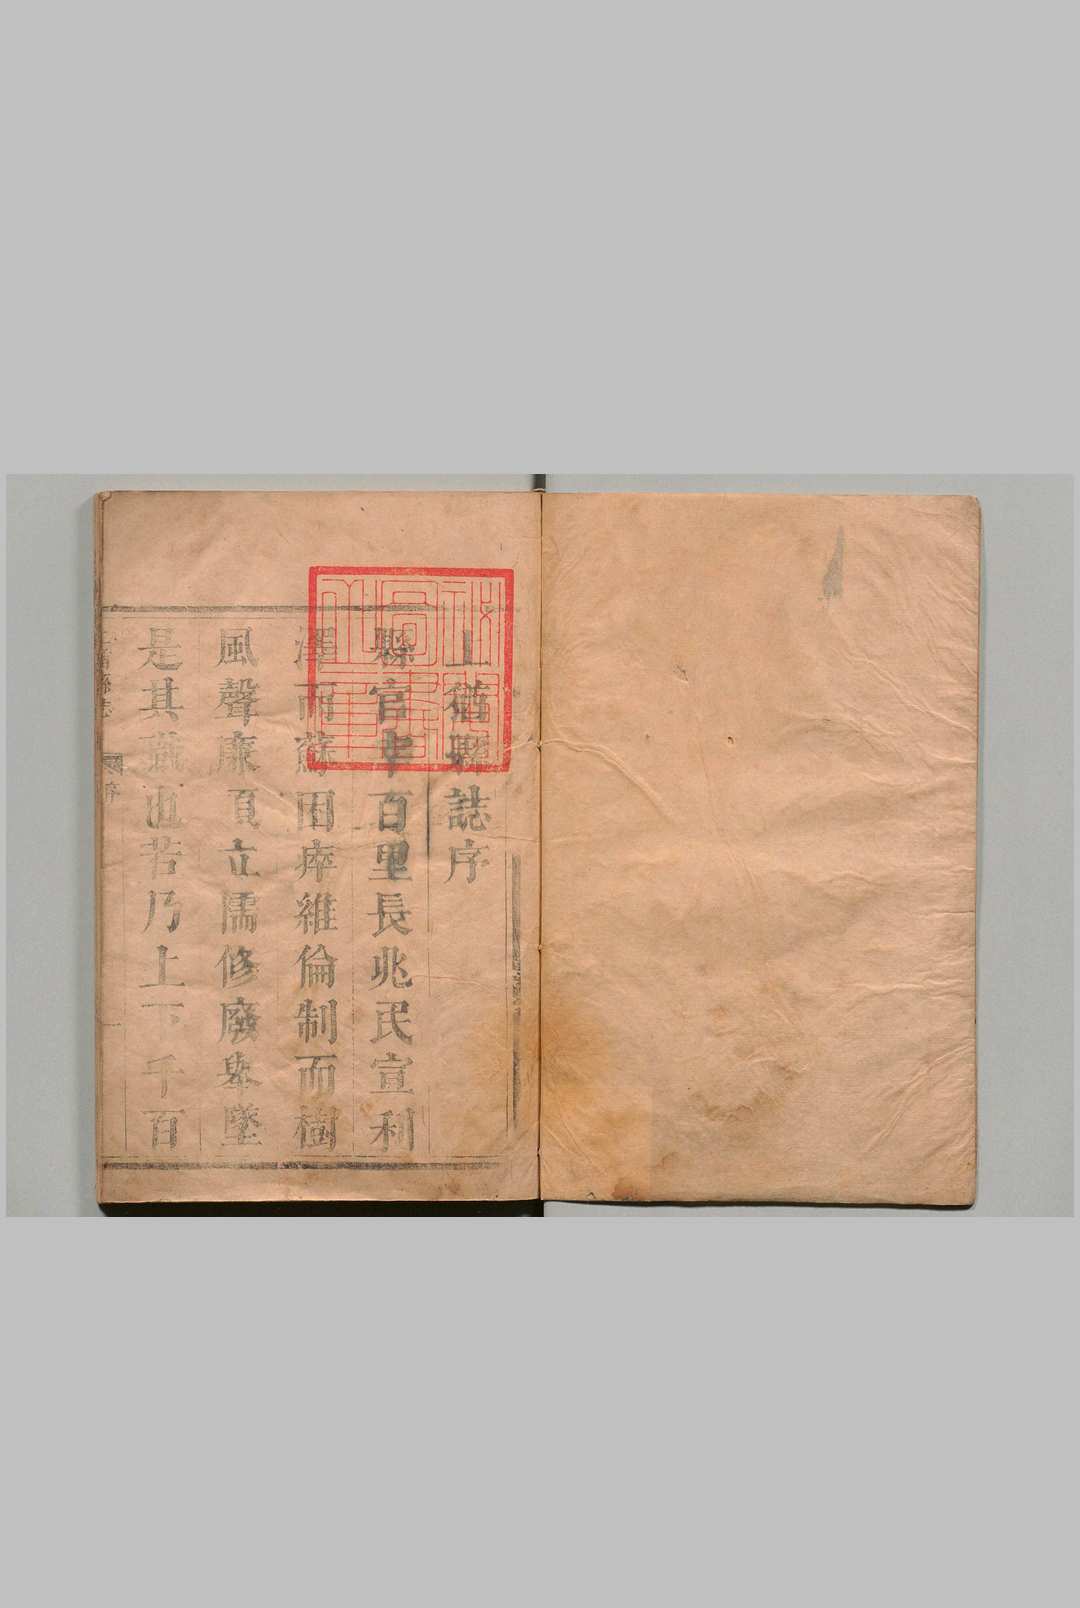 上猶縣誌序
縣官宰百里長兆民宣利
澤而蘇困瘁維倫制而樹
風聲廉頑立懦修廢舉墜
是其職也若乃上下千百